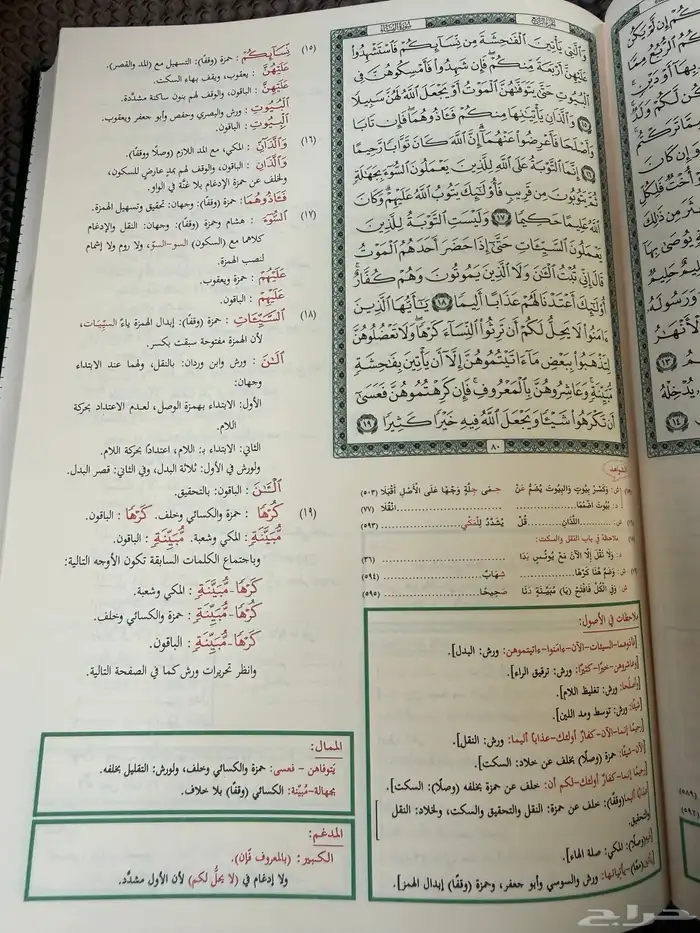 سُورَةُ النِّسَاءِ
وَٱلَّٰتِي يَأْتِينَ ٱلْفَٰحِشَةَ مِن نِّسَآئِكُمْ فَٱسْتَشْهِدُوا۟
عَلَيْهِنَّ أَرْبَعَةً مِّنكُمْ فَإِن شَهِدُوا۟ فَأَمْسِكُوهُنَّ فِي
ٱلْبُيُوتِ حَتَّىٰ يَتَوَفَّىٰهُنَّ ٱلْمَوْتُ أَوْ يَجْعَلَ ٱللَّهُ لَهُنَّ سَبِيلًا
١٥ وَٱلَّذَانِ يَأْتِيَٰنِهَا مِنكُمْ فَـَٔاذُوهُمَا فَإِن تَابَا
وَأَصْلَحَا فَأَعْرِضُوا۟ عَنْهُمَآ إِنَّ ٱللَّهَ كَانَ تَوَّابًا رَّحِيمًا
١٦ إِنَّمَا ٱلتَّوْبَةُ عَلَى ٱللَّهِ لِلَّذِينَ يَعْمَلُونَ ٱلسُّوٓءَ بِجَهَٰلَةٍ
ثُمَّ يَتُوبُونَ مِن قَرِيبٍ فَأُو۟لَٰٓئِكَ يَتُوبُ ٱللَّهُ عَلَيْهِمْ وَكَانَ
ٱللَّهُ عَلِيمًا حَكِيمًا ١٧ وَلَيْسَتِ ٱلتَّوْبَةُ لِلَّذِينَ
يَعْمَلُونَ ٱلسَّيِّـَٔاتِ حَتَّىٰٓ إِذَا حَضَرَ أَحَدَهُمُ ٱلْمَوْتُ
قَالَ إِنِّي تُبْتُ ٱلْـَٰٔنَ وَلَا ٱلَّذِينَ يَمُوتُونَ وَهُمْ كُفَّارٌ
أُو۟لَٰٓئِكَ أَعْتَدْنَا لَهُمْ عَذَابًا أَلِيمًا ١٨ يَٰٓأَيُّهَا ٱلَّذِينَ
ءَامَنُوا۟ لَا يَحِلُّ لَكُمْ أَن تَرِثُوا۟ ٱلنِّسَآءَ كَرْهًا وَلَا تَعْضُلُوهُنَّ
لِتَذْهَبُوا۟ بِبَعْضِ مَآ ءَاتَيْتُمُوهُنَّ إِلَّآ أَن يَأْتِينَ بِفَٰحِشَةٍ
مُّبَيِّنَةٍ وَعَاشِرُوهُنَّ بِٱلْمَعْرُوفِ فَإِن كَرِهْتُمُوهُنَّ فَعَسَىٰٓ
أَن تَكْرَهُوا۟ شَيْـًٔا وَيَجْعَلَ ٱللَّهُ فِيهِ خَيْرًا كَثِيرًا ١٩
٨٠
الشواهد
ش: وَكَسْرُ بُيُوتٍ وَالبُيُوتَ يُضَمُّ عَنْ حِمَى جِلَّةٍ وَجْهًا عَلَى الْأَصْلِ أَقْبَلَا (٥٠٣)
د: بُيُوتَ اضْمُمًا ............ انْقُلَا (٧٧)
ش: ............ اللَّذَانِ ............ قُلْ يُشَدَّدُ لِلْمَكِّي ............ (٥٩٣)
ملاحظة في باب النقل والسكت:
د: وَلَا نَقْلَ إِلَّا الآنَ مَعْ يُونُسٍ بَدَا ............ (٣٦)
ش: وَضُمَّ هُنَا كَرْهًا ............ شِهَابٌ ............ (٥٩٤)
ش: وَفِي الْكُلِّ فَافْتَحْ (يَا) مُبَيِّنَةٍ دَنَا صَحِيحًا ............ (٥٩٥)
ملاحظات في الأصول:
[فآذوهما-السيئات-الآن-ءامنوا-ءاتيتموهن: ورش: البدل].
[وعاشروهن-خيرًا-كثيرًا: ورش: ترقيق الراء].
[وأصلحا: ورش: تغليظ اللام].
[شيئًا: ورش: توسط ومد اللين].
[رحيمًا إنما-الآن-كفارٌ أولئك-عذابًا أليما: ورش: النقل].
[الآن-شيئًا: حمزة (وصلًا) بخلف عن خلاد: السكت].
[رحيمًا إنما-كفارٌ أولئك-لكم أن: خلف عن حمزة بخلفه (وصلًا): السكت].
[عذابًا أليما (وقفًا): خلف عن حمزة: النقل والتحقيق والسكت، ولخلاد: النقل
والتحقيق.
[فيه (وصلًا): المكي: صلة الهاء].
[يأتين (معًا)-يأتيانها: ورش والسوسي وأبو جعفر، وحمزة (وقفًا) إبدال الهمز].
(١٥) نِّسَآئِكُمْ : حمزة (وقفًا): التسهيل مع (المد والقصر).
عَلَيْهُنَّ : يعقوب، ويقف بهاء السكت.
عَلَيْهِنَّ : الباقون، والوقف لهم بنون ساكنة مشدَّدة.
ٱلْبُيُوتِ : ورش والبصري وحفص وأبو جعفر ويعقوب.
ٱلْبِيُوتِ : الباقون.
(١٦) وَٱلَّذَآنِّ : المكي، مع المد اللازم (وصلًا ووقفًا).
وَٱلَّذَانِ : الباقون، والوقف لهم بمد عارض للسكون،
ولخلف عن حمزة الإدغام بلا غنَّة في الواو.
فَـَٔاذُوهُمَا : حمزة (وقفًا): وجهان: تحقيق وتسهيل الهمزة.
(١٧) ٱلسُّوٓءَ : هشام وحمزة (وقفًا): وجهان: النقل والإدغام
كلاهما مع (السكون) السو-السوّ، ولا روم ولا إشمام
لنصب الهمزة.
عَلَيْهُمْ : حمزة ويعقوب.
عَلَيْهِمْ : الباقون.
(١٨) ٱلسَّيِّـَٔاتِ : حمزة (وقفًا): إبدال الهمزة ياءً السيِّيَات،
لأن الهمزة مفتوحة سبقت بكسر.
ٱلَٰنَ : ورش وابن وردان: بالنقل، ولهما عند الابتداء
وجهان:
الأول: الابتداء بهمزة الوصل، لعدم الاعتداد بحركة
اللام.
الثاني: الابتداء بـ: اللام، اعتدادًا بحركة اللام.
ولورش في الأول: ثلاثة البدل، وفي الثاني: قصر البدل.
ٱلْـَٰٔنَ : الباقون: بالتحقيق.
(١٩) كُرْهًا : حمزة والكسائي وخلف. كَرْهًا : الباقون.
مُّبَيَّنَةٍ : المكي وشعبة. مُّبَيِّنَةٍ : الباقون.
وباجتماع الكلمات السابقة تكون الأوجه التالية:
كَرْهًا-مُّبَيَّنَةٍ : المكي وشعبة.
كُرْهًا-مُّبَيِّنَةٍ : حمزة والكسائي وخلف.
كَرْهًا-مُّبَيِّنَةٍ : الباقون.
وانظر تحريرات ورش كما في الصفحة التالية.
الممال:
يَتَوفاهن - فعسى: حمزة والكسائي وخلف، ولورش: التقليل بخلفه.
بجهالة-مُبيِّنة: الكسائي (وقفًا) بلا خلاف.
المدغم:
الكبير: (بالمعروف فَّإن).
ولا إدغام في (لا يحلُّ لكم) لأن الأول مشدَّد.
حراج